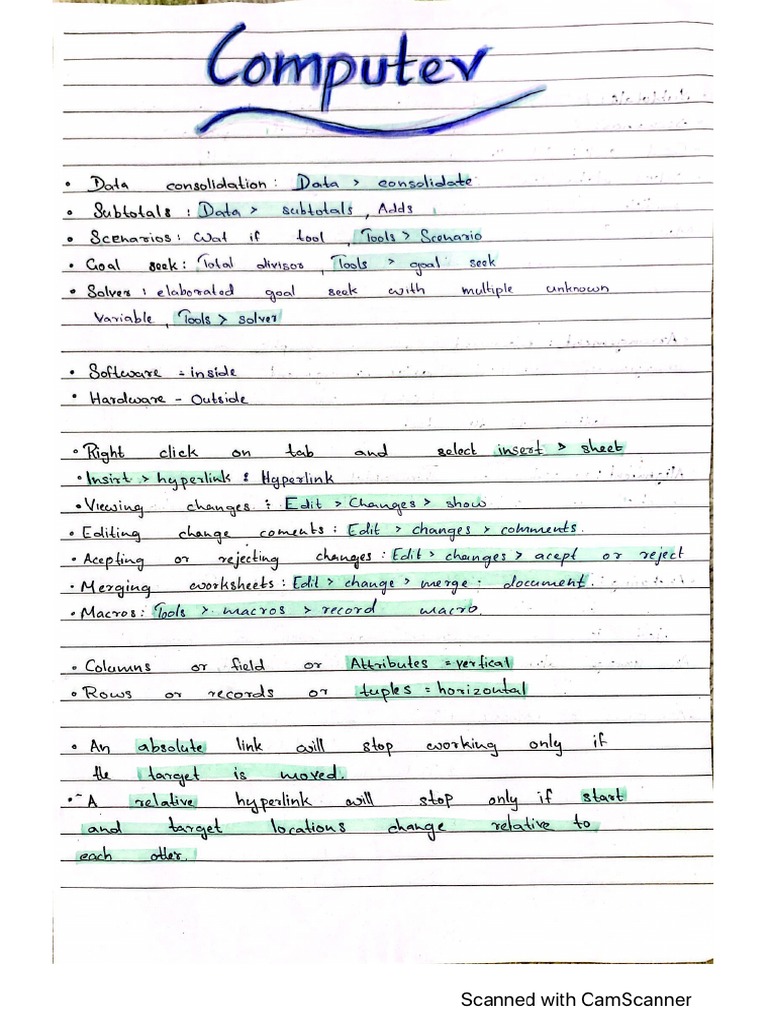 Computer
• Data consolidation: Data > consolidate
• Subtotals : Data > subtotals, Adds
• Scenarios: Wat if tool, Tools > Scenario
• Goal seek: Total divisor, Tools > goal seek
• Solver : elaborated goal seek with multiple unknown
Variable, Tools > solver
• Software = inside
• Hardware - Outside
• Right click on tab and select insert > sheet
• Insirt > hyperlink : Hyperlink
• Viewing changes : Edit > Changes > show
• Editing change coments : Edit > changes > comments.
• Acepting or rejecting changes : Edit > changes > acept or reject
• Merging worksheets : Edit > change > merge document.
• Macros: Tools > macros > record macro.
• Columns or field or Attributes = verfical
• Rows or records or tuples = horizontal
• An absolute link will stop working only if
the target is moved.
• A relative hyperlink will stop only if start
and target locations change relative to
each otler.
Scanned with CamScanner